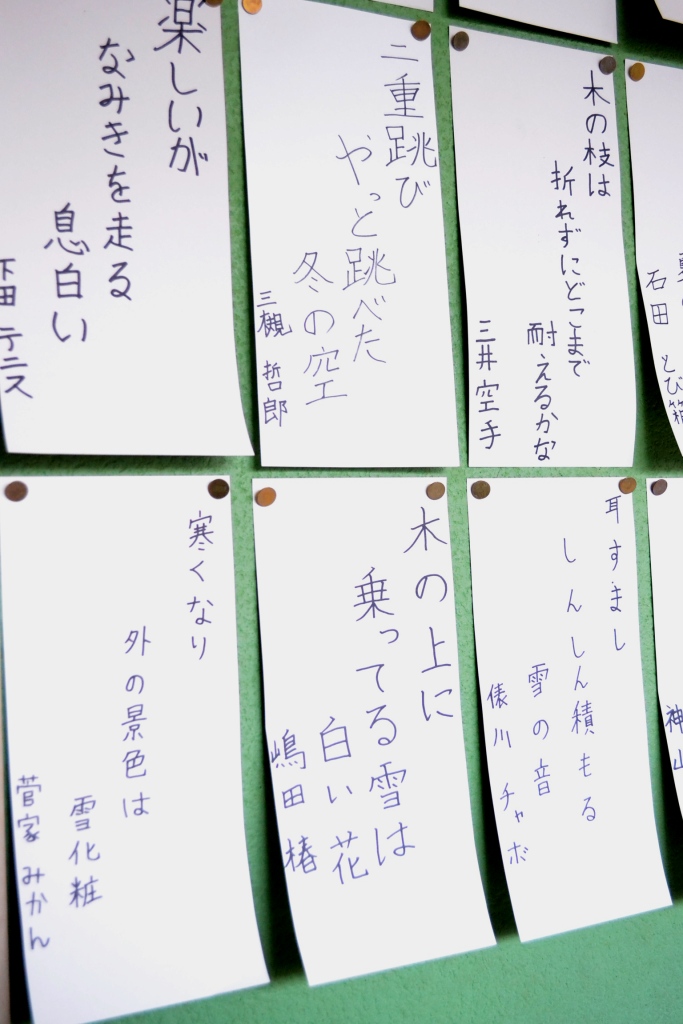 楽しいが
なみきを走る
息白い
下田 テニス
二重跳び
やっと跳べた
冬の空
三槻 哲郎
木の枝は
折れずにどこまで
耐えるかな
三井空手
石田 とび箱
寒くなり
外の景色は
雪化粧
菅家 みかん
木の上に
乗ってる雪は
白い花
嶋田 椿
耳すまし
しんしん積もる
雪の音
俵川 チャボ
神山